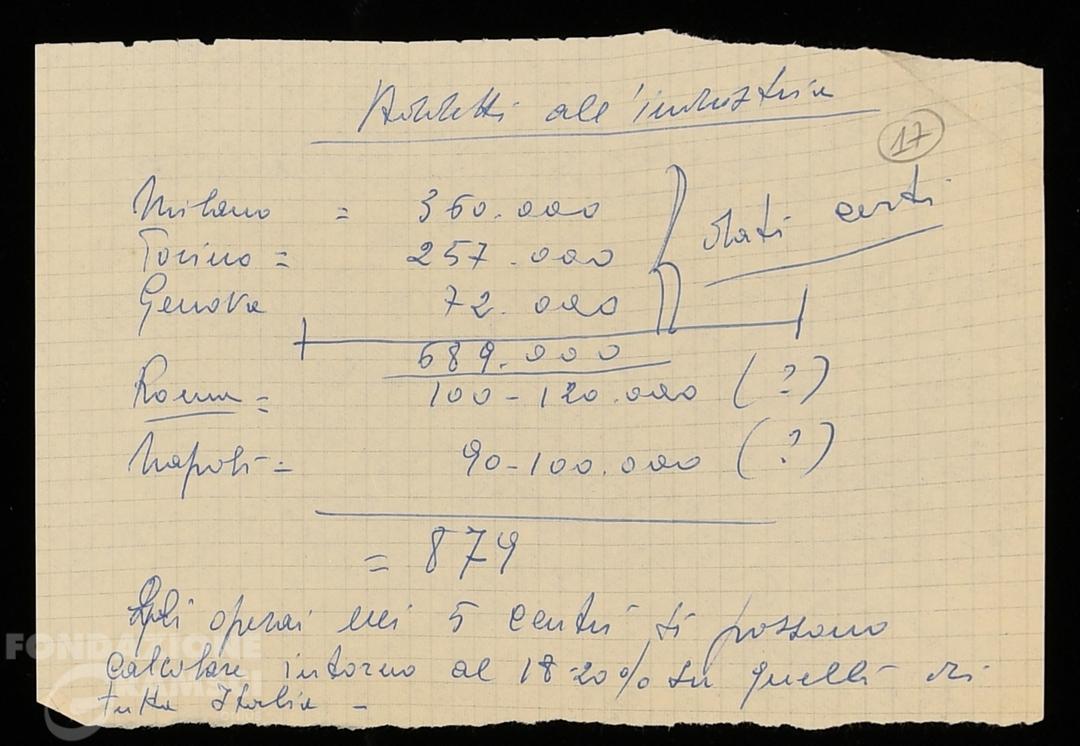 Addetti all'industria
17
Milano = 360.000
Torino = 257.000
Genova 72.000
dati certi
689.000
Roma = 100-120.000 (?)
Napoli = 90-100.000 (?)
= 879
Gli operai nei 5 centri si possono
calcolare intorno al 18-20% su quelli di
tutta Italia -
FONDAZIONE
GRAMSCI